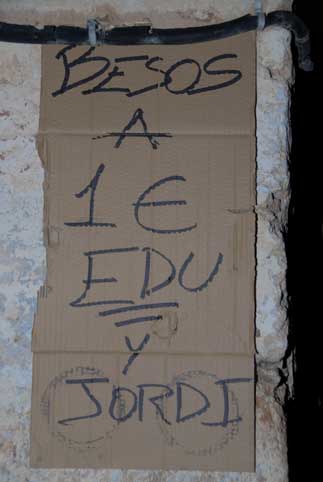 BESOS
A
1 €
EDU
Y
JORDI